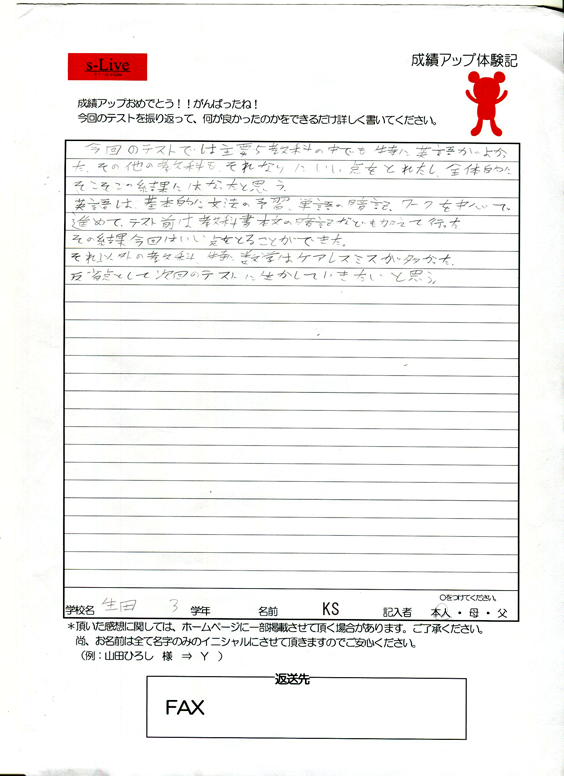 s-Live
成績アップ体験記
成績アップおめでとう！！がんばったね！
今回のテストを振り返って、何が良かったのかをできるだけ詳しく書いてください。
今回のテストでは主要5教科の中でも特に英語がよかっ
た。その他の教科も、それなりにいい点をとれたし、全体的に
そこそこの結果にはなったと思う。
英語は、基本的に文法の予習、単語の暗記、ワークを中心で、
進めて、テスト前は教科書本文の暗記なども加えて行った
その結果今回はいい点をとることができた。
それ以外の教科は、特に数学はケアレスミスが多かった。
反省点として次回のテストに生かしていきたいと思う。
○をつけてください。
学校名 生田 3 学年 名前 KS 記入者 本人・母・父
＊頂いた感想に関しては、ホームページに一部掲載させて頂く場合があります。ご了承ください。
尚、お名前は全て名字のみのイニシャルにさせて頂きますのでご安心ください。
（例：山田ひろし 様 ⇒ Y ）
返送先
FAX